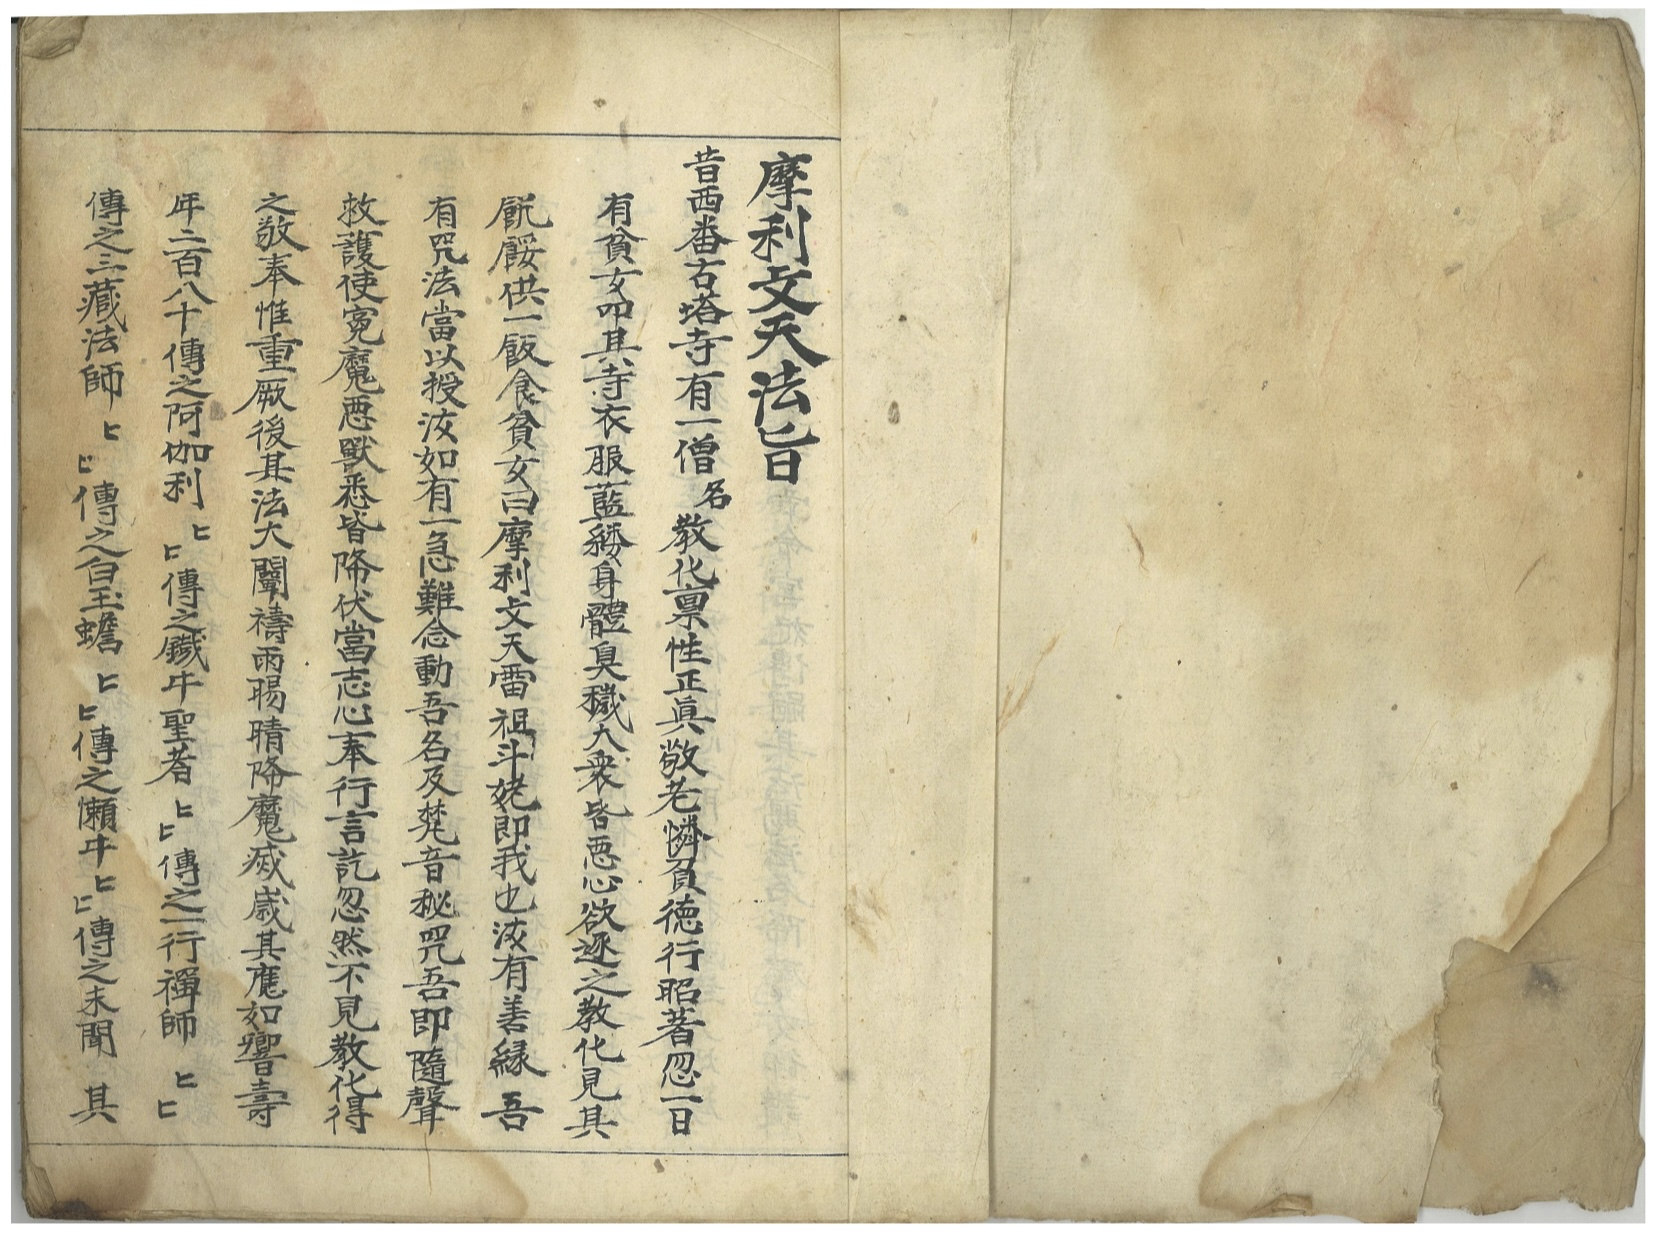 摩利支天法旨
昔西番古塔寺有一僧名教化禀性正眞敬老憐貧德行昭著忽一日
有貧女叩其寺衣服藍縷身體臭穢大衆皆惡心欲逐之教化見其
飢餒供一飯食貧女曰摩利支天雷祖斗姥即我也汝有善緣吾
有咒法當以授汝如有一急難念動吾名及梵音秘咒吾即隨聲
救護使寃魔惡獸悉皆降伏當志心奉行言訖忽然不見教化得
之敬奉惟重厥後其法大闡禱雨賜晴降魔滅歲其應如響壽
年二百八十傳之阿伽利〻〻傳之鐵牛聖者〻〻傳之一行禪師〻〻
傳之三藏法師〻〻傳之白玉蟾〻〻傳之懶牛〻〻傳之未聞其